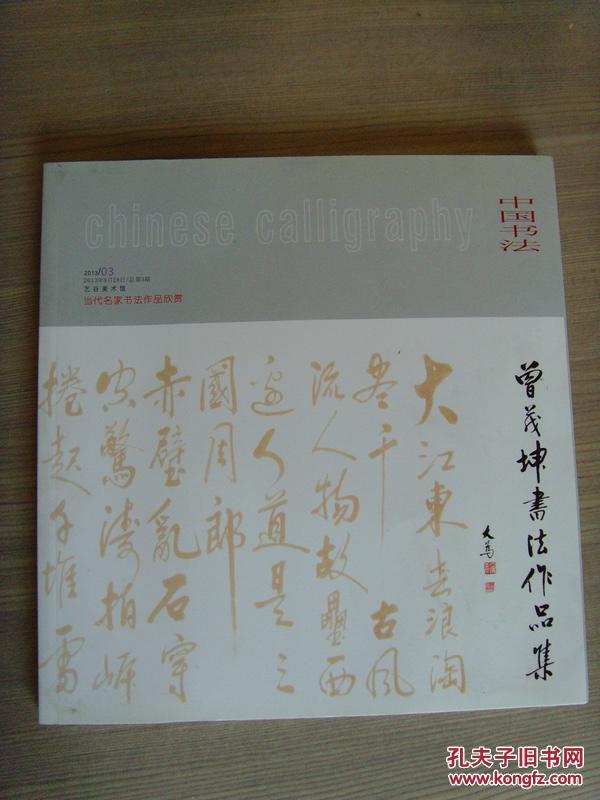 chinese calligraphy
中国书法
2013/03
2013年8月28日/总第3期
艺谷美术馆
当代名家书法作品欣赏
曾茂坤書法作品集
大江東去浪淘
盡千古風
流人物故壘西
邊人道是三
國周郎
赤壁亂石穿
空驚濤拍岸
捲起千堆雪
孔夫子旧书网
www.kongfz.com